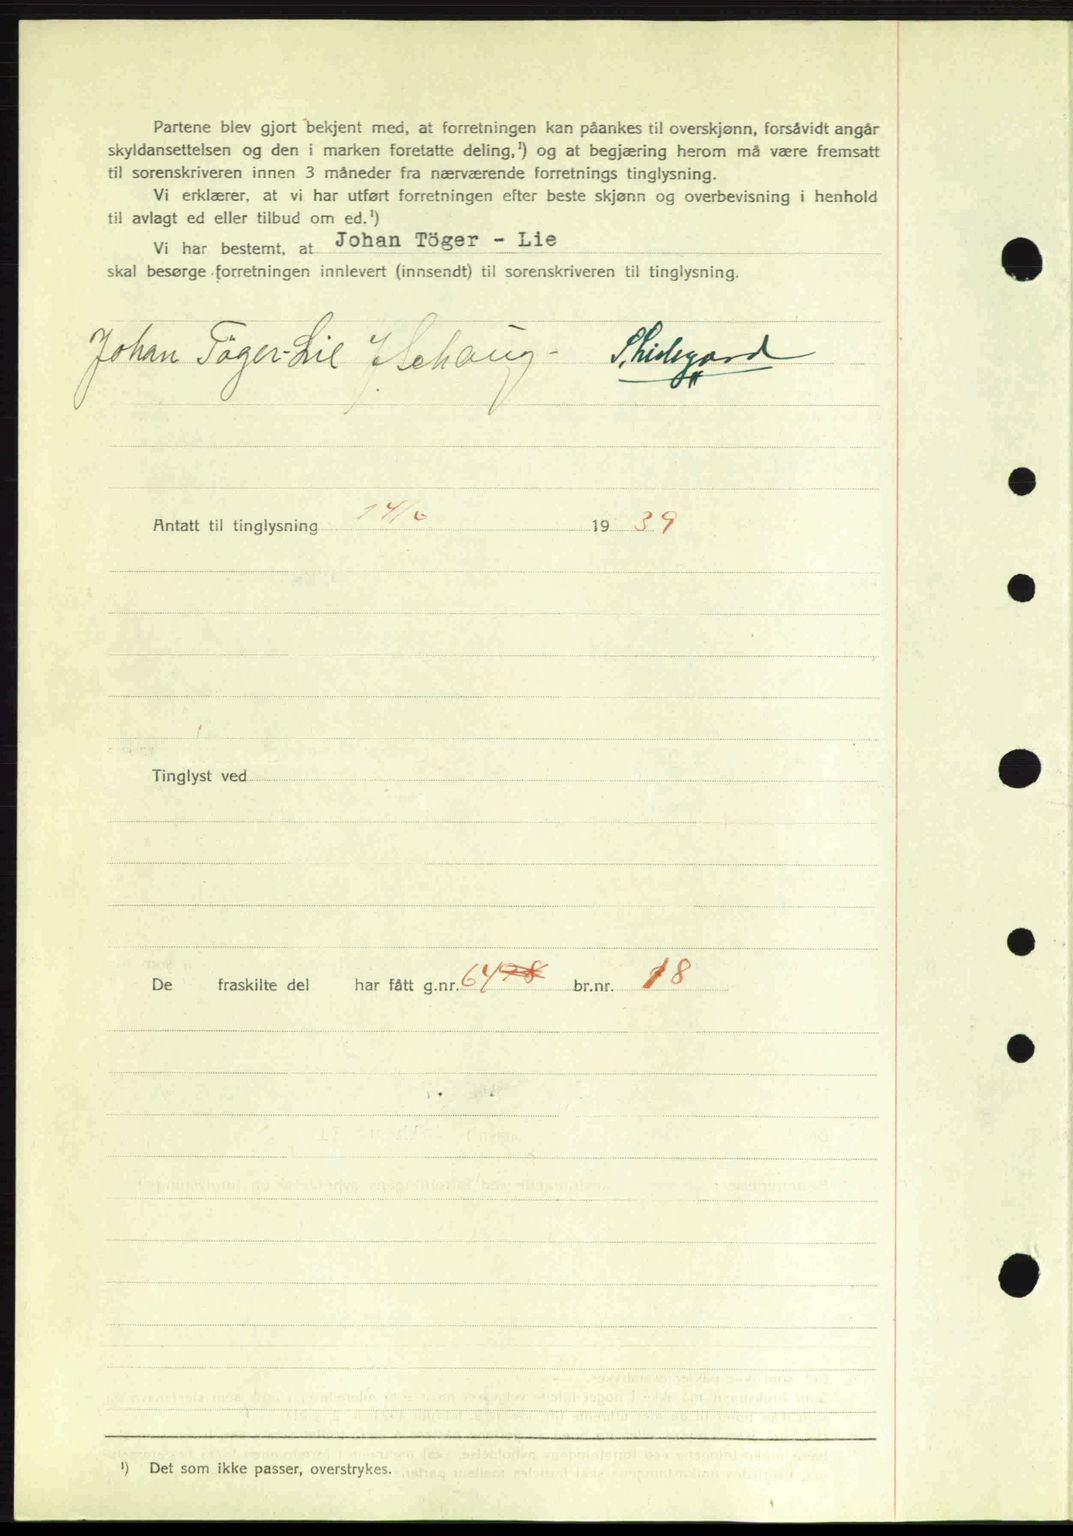 Partene blev gjort bekjent med, at forretningen kan påankes til overskjønn, forsåvidt angår
skyldansettelsen og den i marken foretatte deling,¹) og at begjæring herom må være fremsatt
til sorenskriveren innen 3 måneder fra nærværende forretnings tinglysning.
Vi erklærer, at vi har utført forretningen efter beste skjønn og overbevisning i henhold
til avlagt ed eller tilbud om ed.¹)
Vi har bestemt, at Johan Töger - Lie
skal besørge forretningen innlevert (innsendt) til sorenskriveren til tinglysning.
Johan Töger-Lie
Antatt til tinglysning 14/6 1939
Tinglyst ved
De fraskilte del har fått g.nr. 64 br.nr. 18
¹) Det som ikke passer, overstrykes.